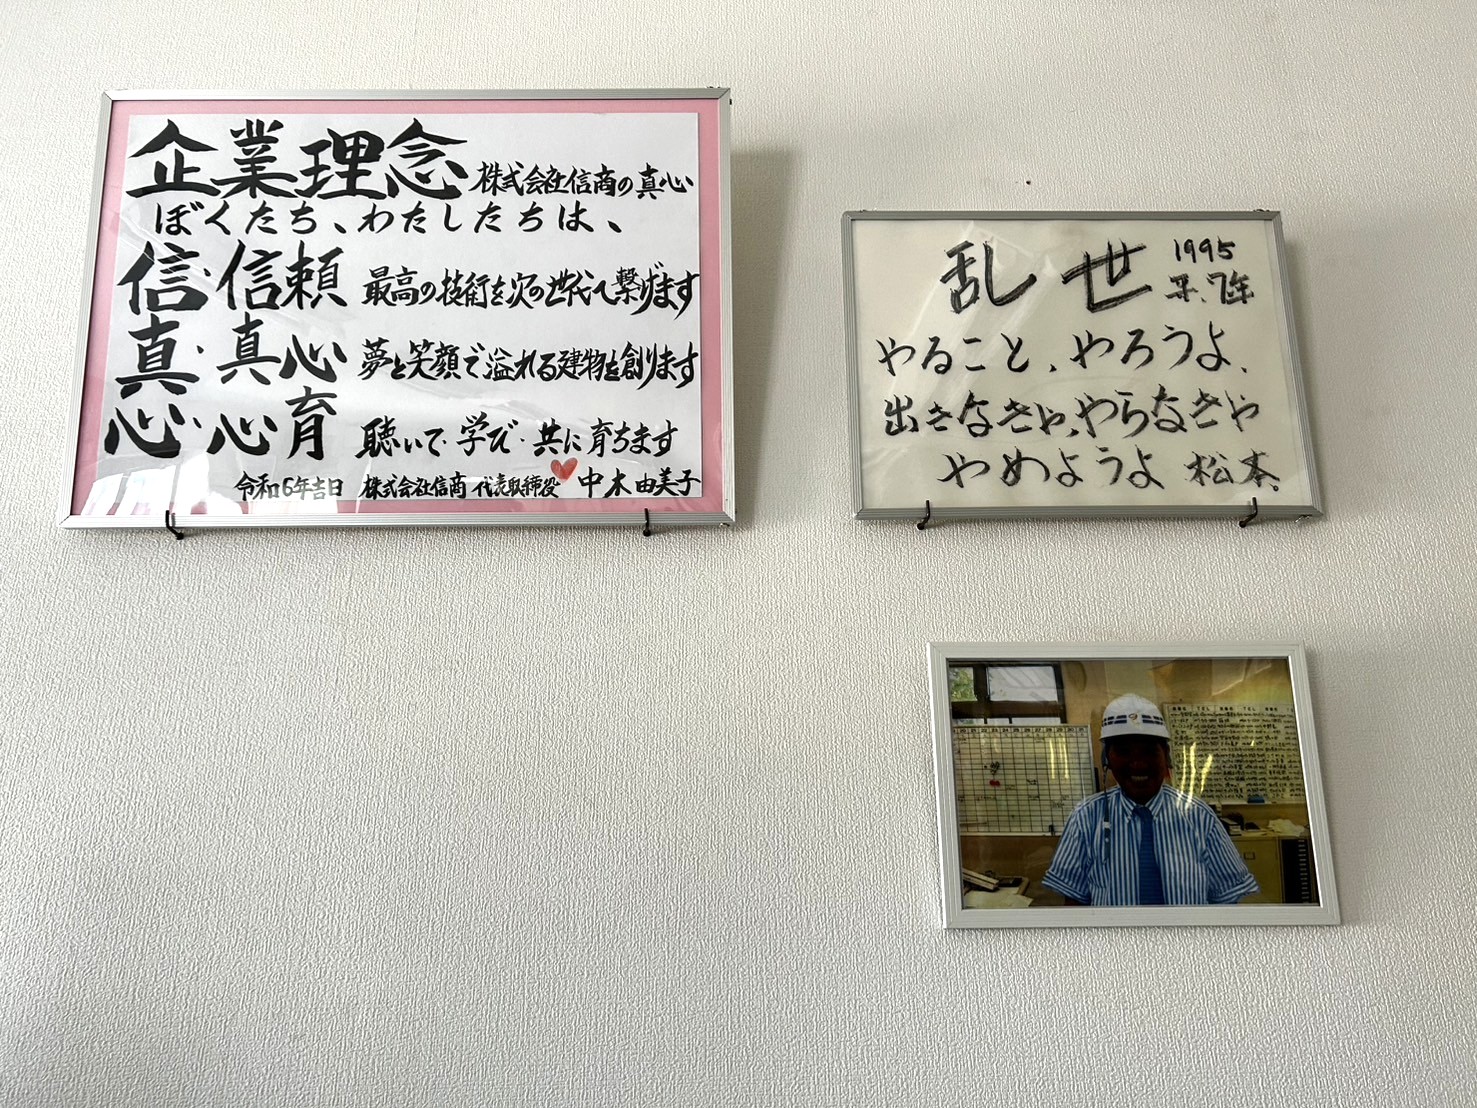 企業理念 株式会社信商の真心
ぼくたち、わたしたちは、
信・信頼 最高の技術を次の世代へ繋げます
真・真心 夢と笑顔で溢れる建物を創ります
心・心育 聴いて・学び・共に育ちます
令和6年吉日 株式会社信商 代表取締役 中木由美子
乱世 1995
平、7年
やること、やろうよ、
出きなきゃ、やらなきゃ
やめようよ 松本